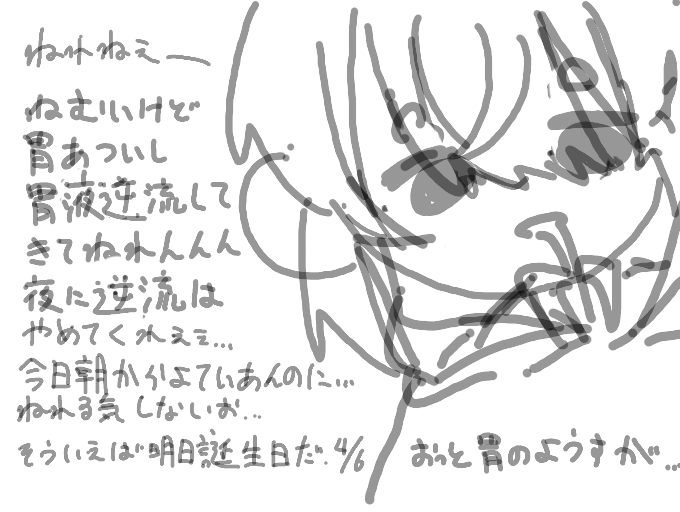 ねれねぇー
ねむいけど
胃あついし
胃液逆流して
きてねれんんん
夜に逆流は
やめてくれぇぇ...
今日朝からよていあんのに...
ねれる気しないお...
そういえば明日誕生日だ. 4/6
おっと胃のようすが...